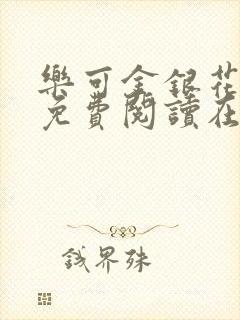 樂可金銀花
免費閱讀在
錢界殊